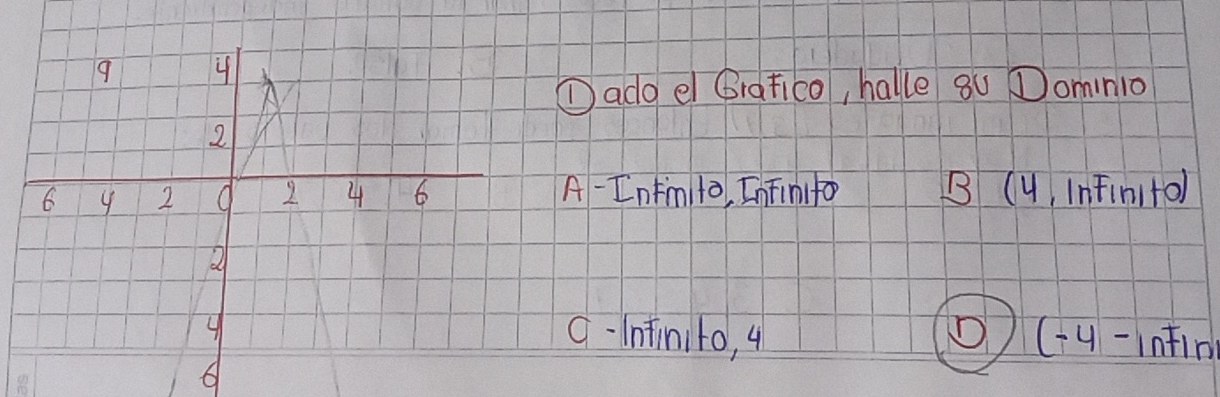 9 4
① Dado el Grafico, halle su Dominio
2
6 4 2 0 2 4 6
A -Infinito, Infinito B (4, Infinito)
2
4
C -Infinito, 4 D (-4 -infin
6